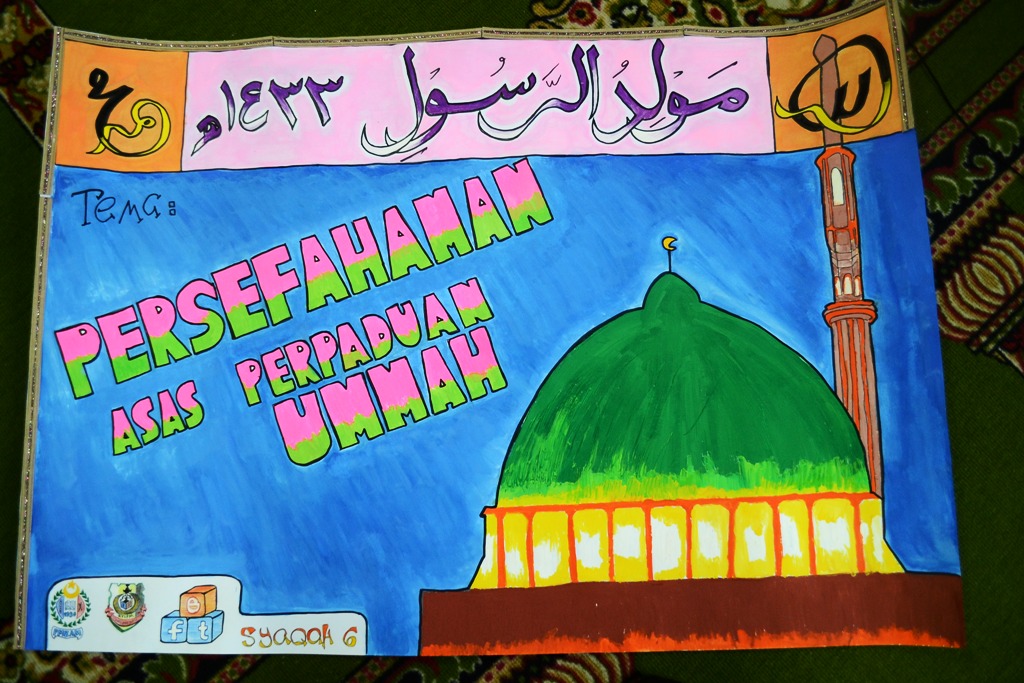 الله مَوْلِدُ الرَّسُوْلِ ١٤٣٣هـ محمد
Tema:
PERSEFAHAMAN
ASAS PERPADUAN
UMMAH
e
f t
SYAQAH 6